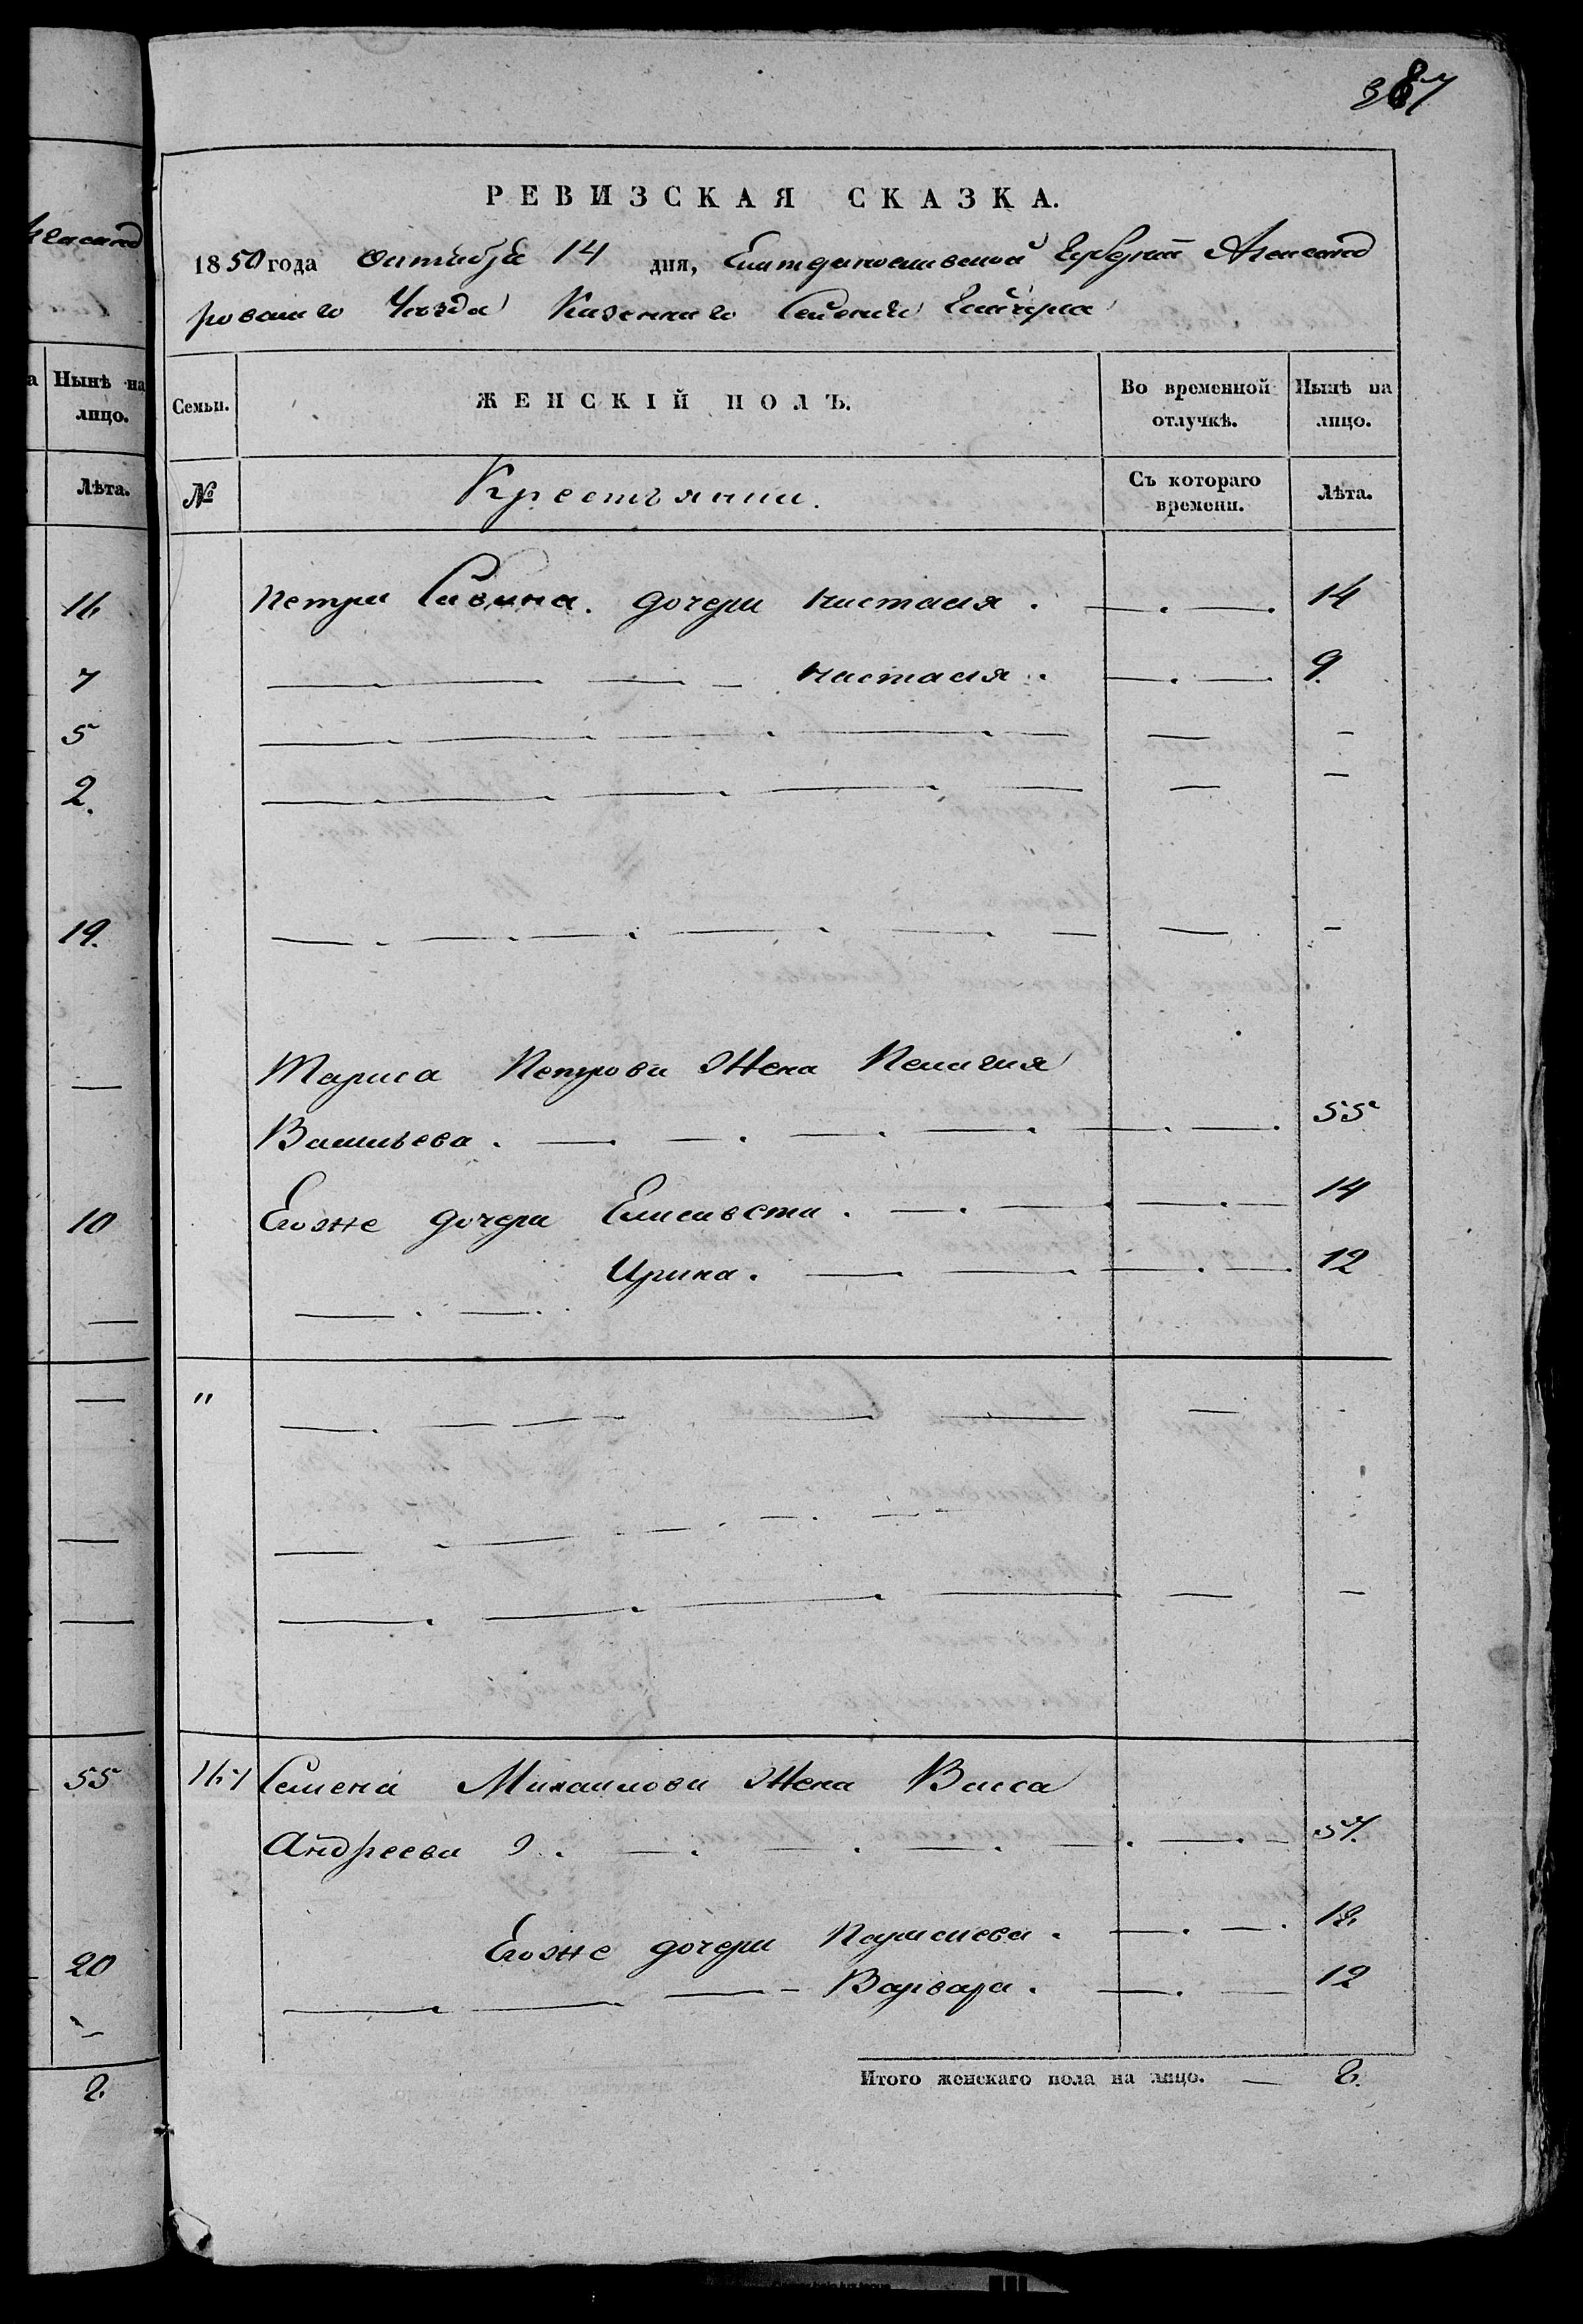 387
РЕВИЗСКАЯ СКАЗКА.
1850 года Октября 14 дня, Екатеринославской Губерніи Александ
ровскаго Уѣзда Казеннаго Селенія
Семьи.
ЖЕНСКІЙ ПОЛЪ.
Во временной отлучкѣ.
Нынѣ на лицо.
№
Крестьянки.
Съ котораго времени.
Лѣта.
Петра Савина. дочери Настасія. 14
Настасія. 9.
Мариса Петрова Жена Пелагия
Васильева. 55
Егоже дочери Елисавета. 14
Ирина. 12
"
Семена Михаилова Жена Васса
Андреева 57.
Егоже дочери
Варвара. 12
Итого женскаго пола на лицо. — 8.
Нынѣ на
лицо.
Лѣта.
16
7
5
2.
19.
10
55
20